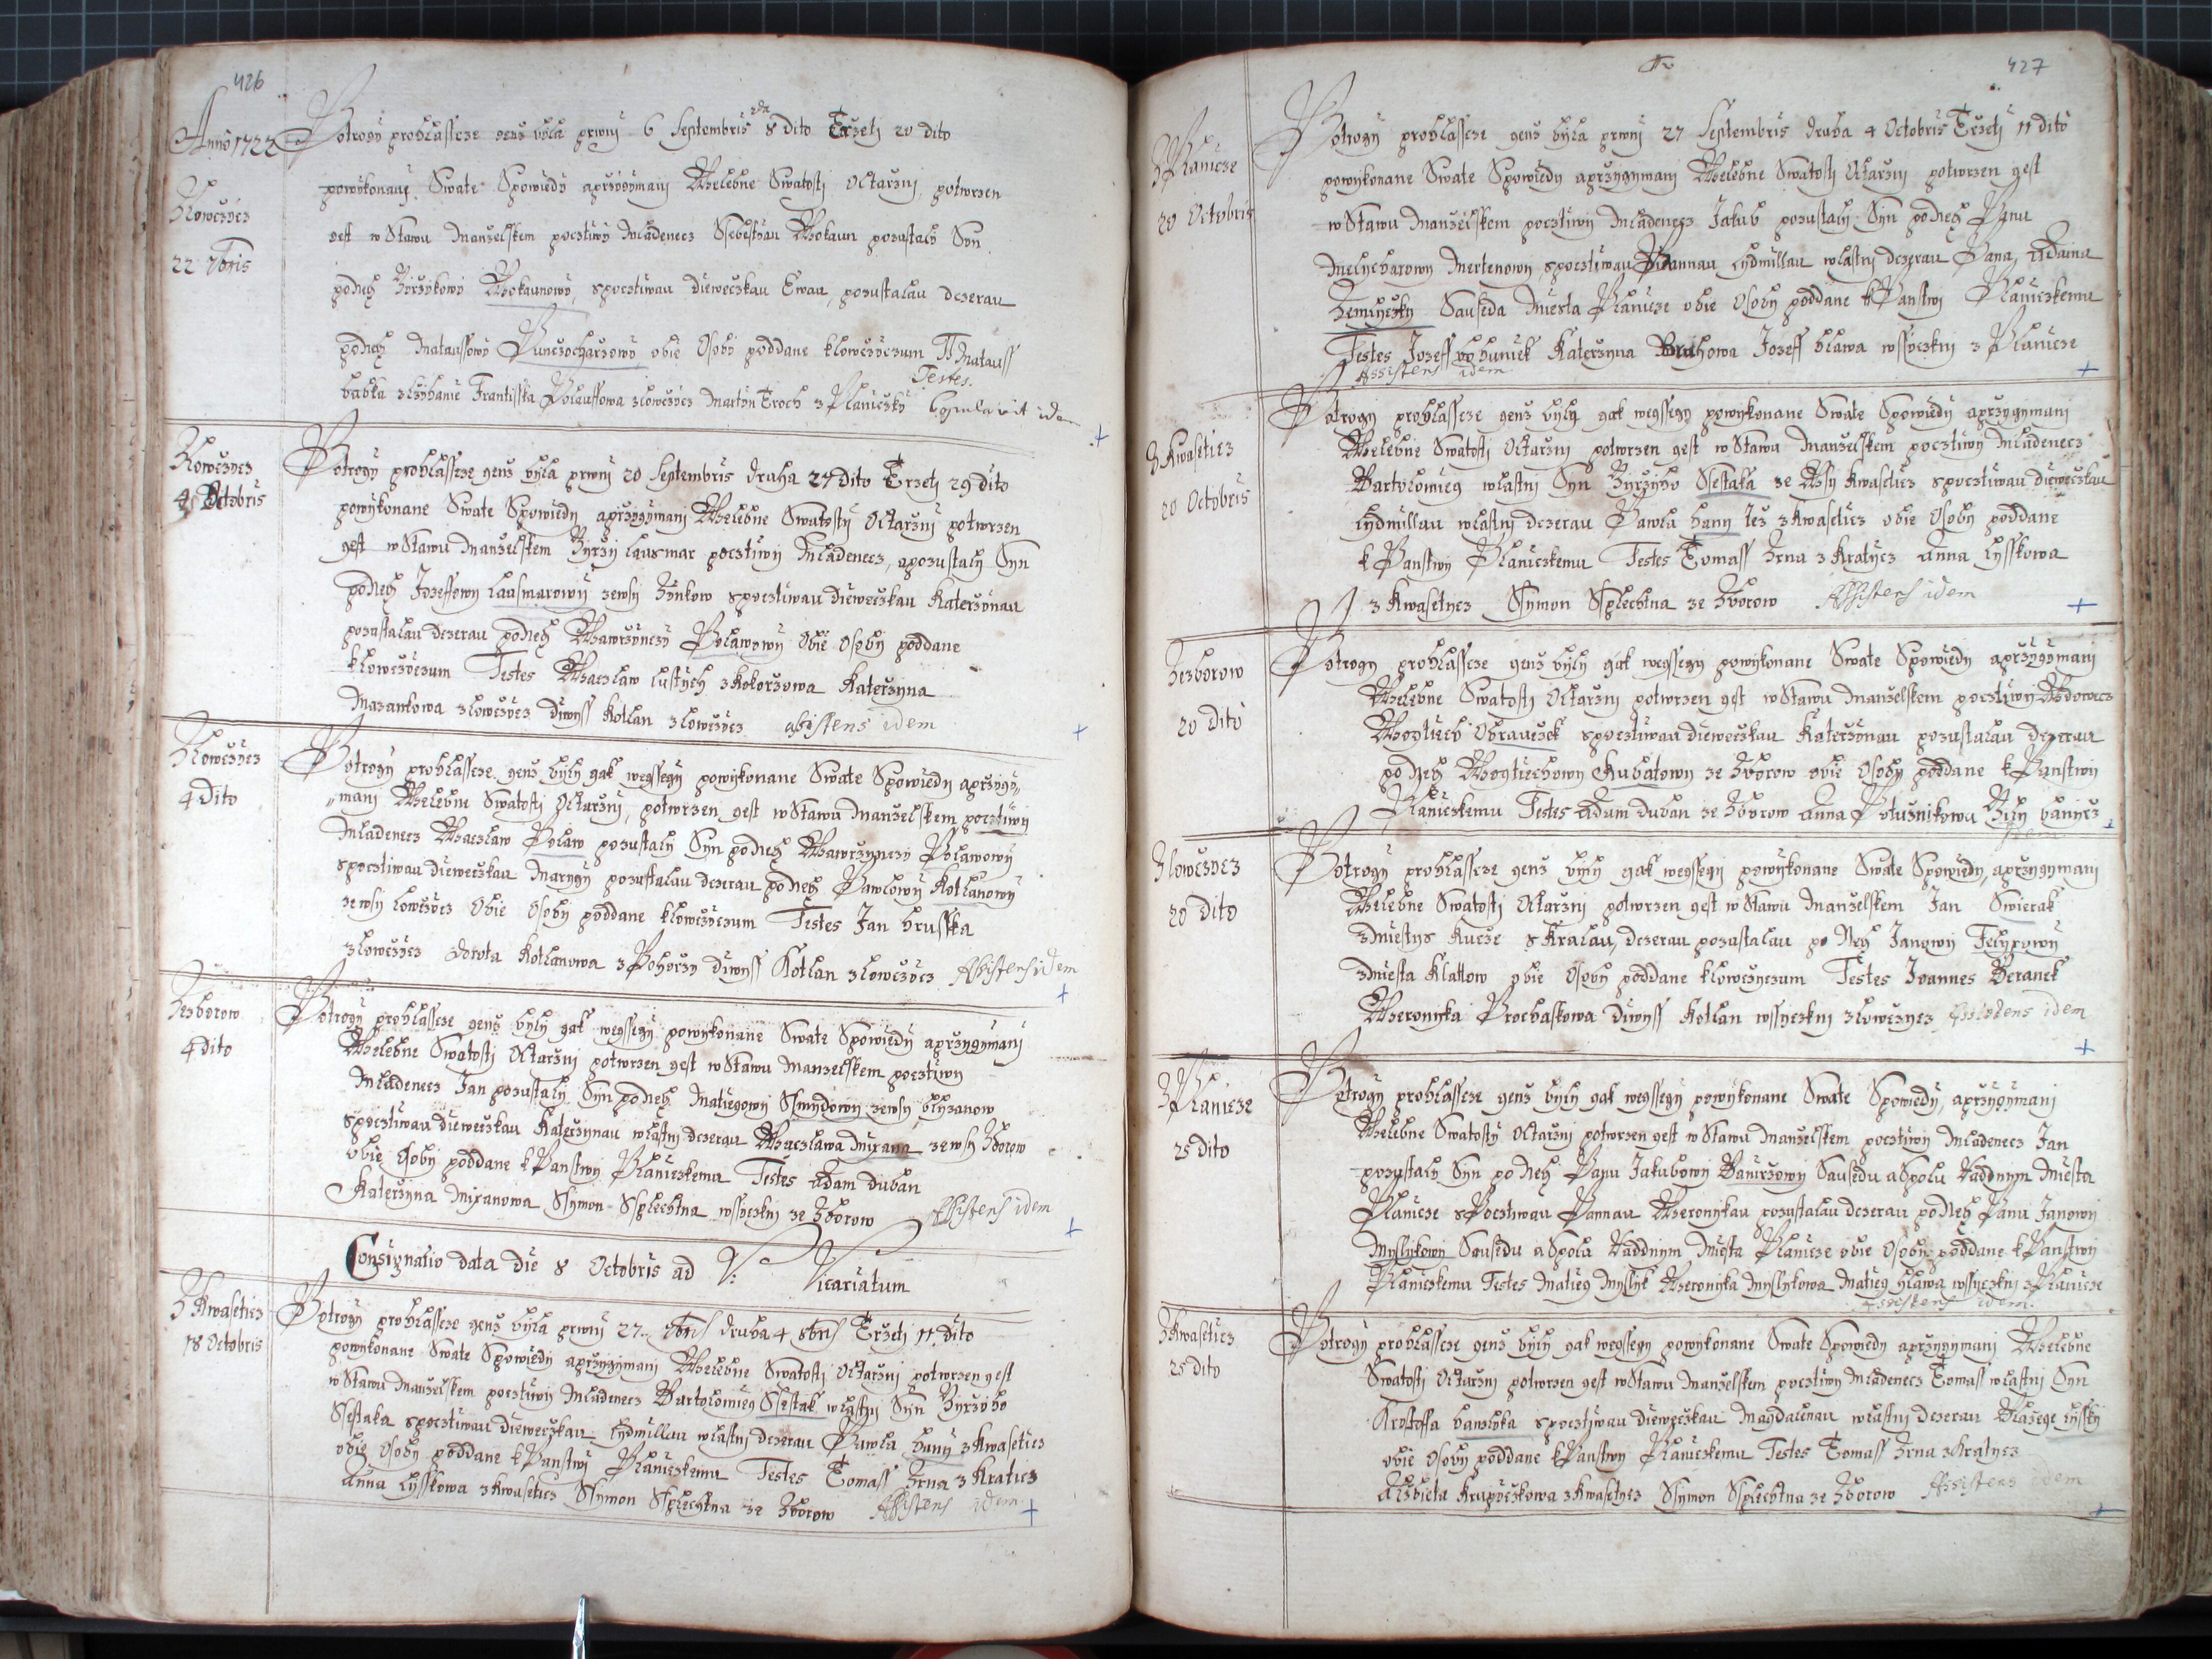 426
Anno 1722
Potrogy prohlassce genž byla prwnj 6 Septembris 2da 8 dito Tržetj 20 dito
Zlowcžycz
22 7bris
powykonanj Swate Spowiedy apržygymanj Welebne Swatosti Oltaržnj, potwrzen
gest w Stawu Manželskem pocztiwy Mladenecz Ssebestyan Wokaun pozustaly Syn
po Neb. Giržykowy Wokaunowy, spocztiwau diewecžkau Ewau, pozustalau dczerau
po Neb. Mataussowy Punczocharzowy obie Osoby poddane kLowcžyczum Ts Matauss
Testes.
babka z Lžybanie Frantisska Polaussowa z Lowcžycz Martyn Troch z Planicžky Copulavit idem
Zlowcžycz
4 Octobris
Potrogy prohlassce genž byla prwnj 20 Septembris druha 27 dito Tržetj 29 dito
powykonane Swate Spowiedy apržygymanj Welebne Swatosti Oltaržnj potwrzen
gest w Stawu Manželskem Giržy Lausmar pocztiwy Mladenecz, a pozustaly Syn
po Neb. Jozeffowy Lausmarowy zewsy Zdnkow spocztiwau diewecžkau Katerzynau
pozustalau dczerau po Neb. Wawržynczy Polawowy Obie Osoby poddane
kLowcžyczum Testes Waczlaw Lustych z Kokoržowa Kateržyna
Mazankowa z Lowcžycz Diwyss Kotlan z Lowcžycz assistens idem
Zlowcžycz
4 Dito
Potrogy prohlassce genž byly gak wegssegy powykonane Swate Spowiedy apržygy
manj Welebne Swatosti Oltaržnj, potwrzen gest w Stawu Manželskem pocztiwy
Mladenecz Waczlaw Polaw pozustaly Syn po Neb. Wawržynczy Polawowy
spocztiwau diewecžkau Marygj pozustalau dczerau po Neb. Pawlowy Kotlanowy
zewsy Lowcžycz Obie Osoby poddane kLowcžyczum Testes Jan Hrusska
z Lowcžycz Dorota Kotlanowa z Pohoržy Diwyss Kotlan z Lowcžycz Assistens idem
Zezborow
4 dito
Potrogy prohlassce genž byly gak wegssegy powykonane Swate Spowiedy apržygymanj
Welebne Swatosti Oltaržnj potwrzen gest w Stawu Manzelskem pocztiwy
Mladenecz Jan pozustaly Syn po Neb. Matiegowy Ssmydowy zewsy blyzanow
spocztiwau diewecžkau Kateržynau wlastnj dczerau Waczlawa Mixana zewsy Zborow
obie Osoby poddane kPanstwj Planiczkemu Testes Adam Duban
Kateržyna Mixanowa Ssymon Ssplechtna wssyczknj ze Zborow Assistens idem
Consignatio data die 8 Octobris ad V: Vicariatum
Z Kwaseticz
18 Octobris
Potrogy prohlassce genž byla prwnj 27 7bris druha 4 8bris Tržetj 11 dito
powykonane Swate Spowiedy apržygymanj Welebne Swatosti Oltaržnj potwrzen gest
w Stawu Manželskem pocztiwy Mladenecz Bartolomieg Ssestak wlastnj Syn Gyržyho
Ssestaka spocztiwau diewecžkau Lydmillau wlastnj dczerau Pawla Hany z Kwaseticz
obie Osoby poddane kPanstwj Planiczkemu Testes Tomass Zrna z Kraticz
Anna Lysskowa z Kwaseticz Ssymon Ssplechtna ze Zborow Assistens idem
427
Z Planicze
20 Octobris
Potrogy prohlassce genž byla prwnj 27 Septembris druha 4 Octobris Tržetj 11 dito
powykonane Swate Spowiedy apržygymanj Welebne Swatosti Oltaržnj potwrzen gest
w Stawu Manželskem pocztiwy Mladenecz Jakub pozustaly Syn po Neb. Panu
Melycharowy Mertenowy, spocztiwau Pannau Lydmillau wlastnj dczerau Pana Adama
Zemlycžky Sauseda Miesta Planicze obie Osoby poddane kPanstwj Planiczkemu
Testes Jozeff Kateržyna Jozeff hlawa wssyczknj z Planicze
Assistens idem
Z Kwaseticz
20 Octobris
Potrogy prohlassce genž byly gak wegssegy powykonane Swate Spowiedy apržygymanj
Welebne Swatosti Oltaržnj potwrzen gest w Stawu Manželskem pocztiwy Mladenecz
Bartolomieg wlastnj Syn Gyržyho Ssestaka ze Wsy Kwaseticz spocztiwau diewecžkau
Lydmillau wlastnj dczerau Pawla Hany tež z Kwaseticz obie Osoby poddane
k Panstwj Planiczkemu Testes Tomass Zrna z Kratycz Anna Lysskowa
z Kwasetycz Ssymon Ssplechtna ze Zborow Assistens idem
Zezborow
20 dito
Potrogy prohlassce genž byly gak wegssegy powykonane Swate Spowiedy apržygymanj
Welebne Swatosti Oltaržnj potwrzen gest w Stawu Manzelskem pocztiwy Wdowecz
Wogtiech Obraucžek spocztiwau diewecžkau Kateržynau pozustalau dczerau
po Neb. Wogtiechowy Kubatowy ze Zborow obie Osoby poddane kPanstwj
Planiczkemu Testes Adam Duban ze Zborow Anna Potužnikowa
Zlowcžycz
20 dito
Potrogy prohlassce genž byly gak wegssegy powykonane Swate Spowiedy, apržygymanj
Welebne Swatosti Oltaržnj potwrzen gest w Stawu Manželskem Jan Swierak
z Miestys Kucze s Kralau, dczerau pozustalau po Neb. Janowy Felyxowy
z Miesta Klattow obie Osoby poddane kLowcžyczum Testes Joannes Beranek
Weronyka Prochaskowa Diwyss Kotlan wssyczknj z Lowcžycz Assistens idem
Z Planicze
25 dito
Potrogy prohlassce genž byly gak wegssegy powykonane Swate Spowiedy, apržygymanj
Welebne Swatosty Oltaržnj potwrzen gest w Stawu Manželskem pocztiwy Mladenecz Jan
pozustaly Syn po Neb. Panu Jakubowy Sausedu a Spolu Raddnym Miesta
Planicze s Pocztiwau Pannau Weronykau pozustalau dczerau po Neb. Panu Janowy
Myslykowy Sausedu a Spolu Raddnym Miesta Planicze obie Osoby poddane kPanstwj
Planiczkemu Testes Matieg Myslyk Weronyka Myslykowa Matieg hlawa wssyczknj z Planicze
Assistens idem.
Z Kwaseticz
25 Dito
Potrogy prohlassce genž byly gak wegssegy powykonane Swate Spowiedy apržygymanj Welebne
Swatosti Oltaržnj potwrzen gest w Stawu Manželskem pocztiwy Mladenecz Tomass wlastnj Syn
Krystoffa hawlyka spocztiwau diewecžkau Magdalenau wlastnj dczerau Blažege Lyssky
obie Osoby poddane kPanstwj Planiczkemu Testes Tomass Zrna z Kratycz
Alžbieta Krupycžkowa z Kwasetycz Ssymon Ssplechtna ze Zborow Assistens idem